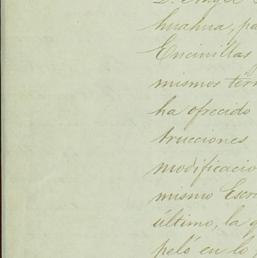 D. Angel
huahua, pa
Encinillas
mismos térm
ha ofrecido
trucciones
modificacio
mismo Escri
último, la q
peló en lo